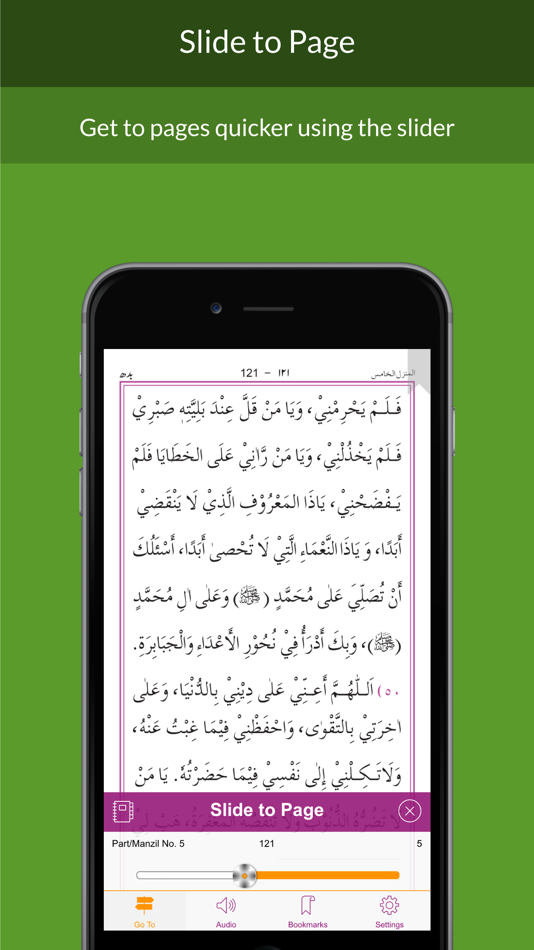 Slide to Page
Get to pages quicker using the slider
المنزل الخامس
121 – ١٢١
بدھ
فَلَمْ يَحْرِمْنِيْ، وَيَا مَنْ قَلَّ عِنْدَ بَلِيَّتِهٖ صَبْرِيْ
فَلَمْ يَخْذُلْنِيْ، وَيَا مَنْ رَّاٰنِيْ عَلَى الْخَطَايَا فَلَمْ
يَفْضَحْنِيْ، يَاذَا الْمَعْرُوْفِ الَّذِيْ لَا يَنْقَضِيْ
أَبَدًا، وَ يَاذَا النَّعْمَاءِ الَّتِيْ لَا تُحْصىٰ أَبَدًا، أَسْئَلُكَ
أَنْ تُصَلِّيَ عَلىٰ مُحَمَّدٍ (ﷺ) وَعَلىٰ اٰلِ مُحَمَّدٍ
(ﷺ)، وَبِكَ أَدْرَأُ فِيْ نُحُوْرِ الْأَعْدَاءِ وَالْجَبَابِرَةِ.
٥٠) اَللّٰهُمَّ أَعِنِّيْ عَلىٰ دِيْنِيْ بِالدُّنْيَا، وَعَلىٰ
اٰخِرَتِيْ بِالتَّقْوٰى، وَاحْفَظْنِيْ فِيْمَا غِبْتُ عَنْهُ،
وَلَاتَكِلْنِيْ إِلىٰ نَفْسِيْ فِيْمَا حَضَرْتُهٗ. يَا مَنْ
لَا تَضُرُّهُ الذُّنُوْبُ وَلَا تَنْقُصُهُ الْمَغْفِرَةُ، هَبْ لِيْ
Slide to Page
Part/Manzil No. 5 121 5
Go To Audio Bookmarks Settings